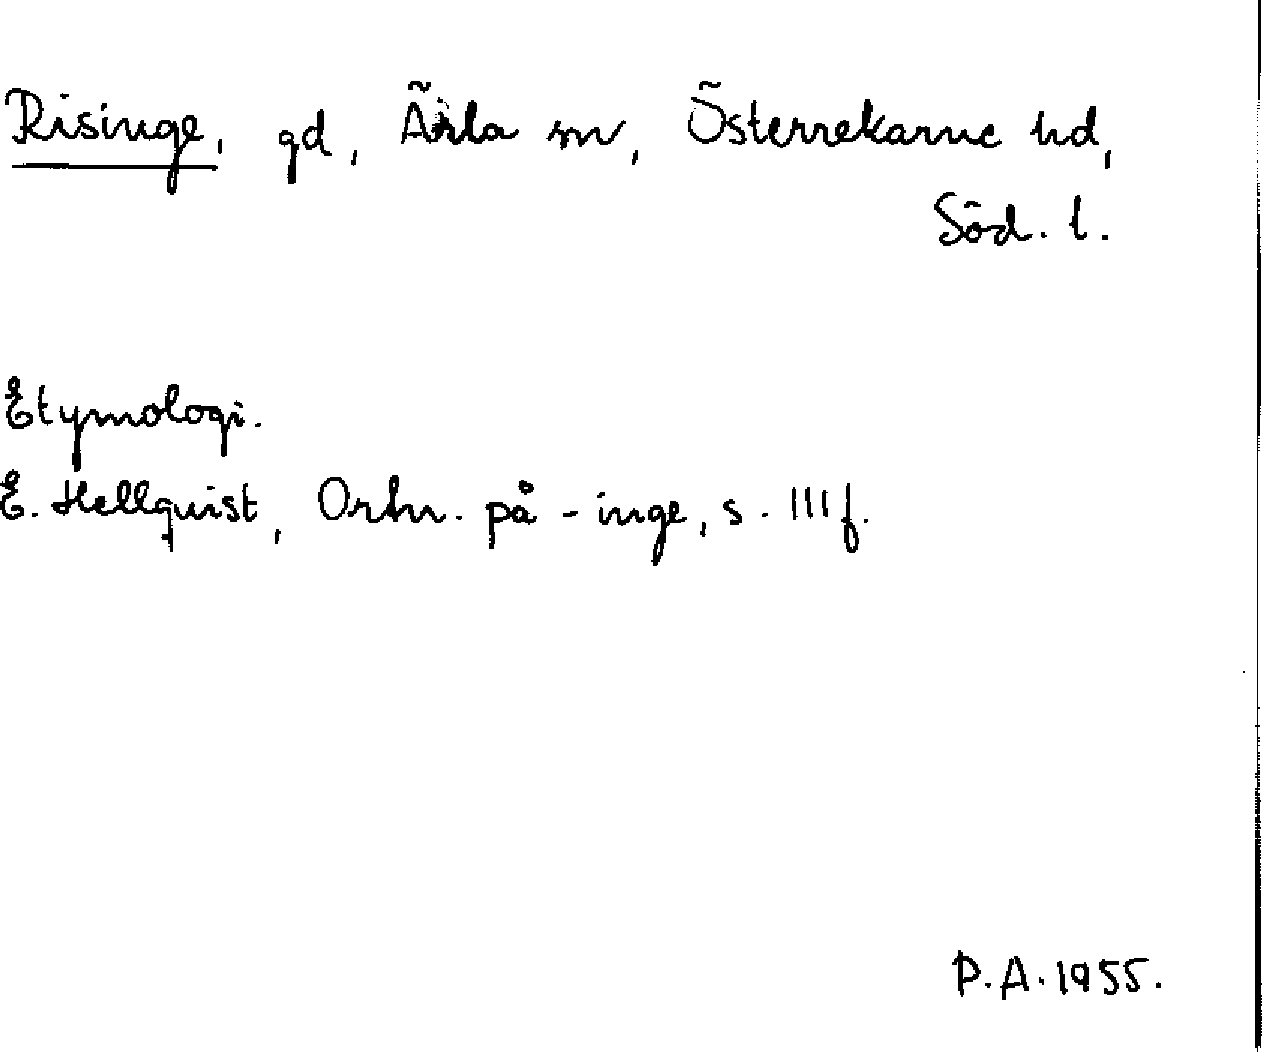 Risinge, gd, Ärla sn, Österrekarne hd,
Söd. l.
Etymologi.
E. Hellquist, Ortn. på -inge, s. 111 f.
P.A. 1955.